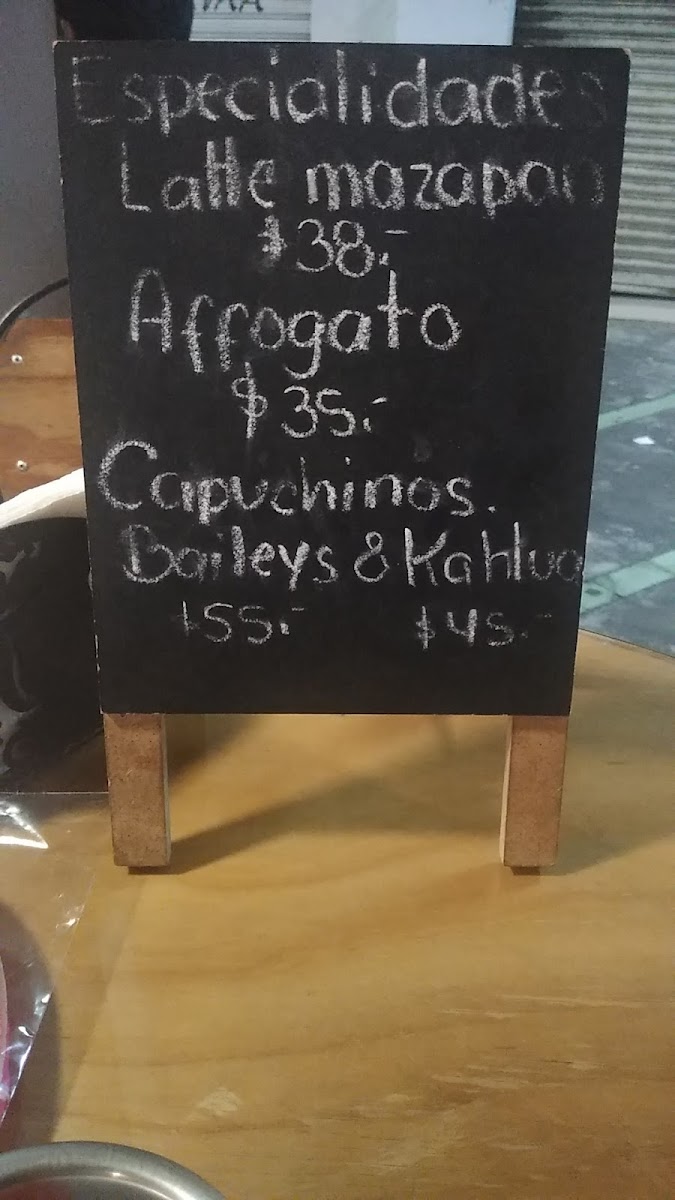 Especialidades
Latte mazapan
$38.-
Affogato
$35.-
Capuchinos.
Baileys & Kahlua
$55.- $45.-